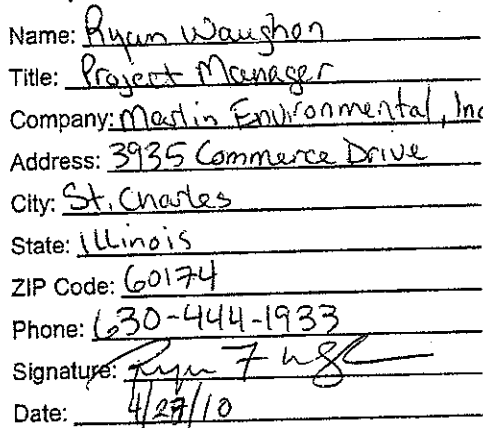 Name: Ryan Waughon
Title: Project Manager
Company: Martin Environmental, Inc
Address: 3935 Commerce Drive
City: St. Charles
State: Illinois
ZIP Code: 60174
Phone: 630-444-1933
Signature:
Date: 4/27/10